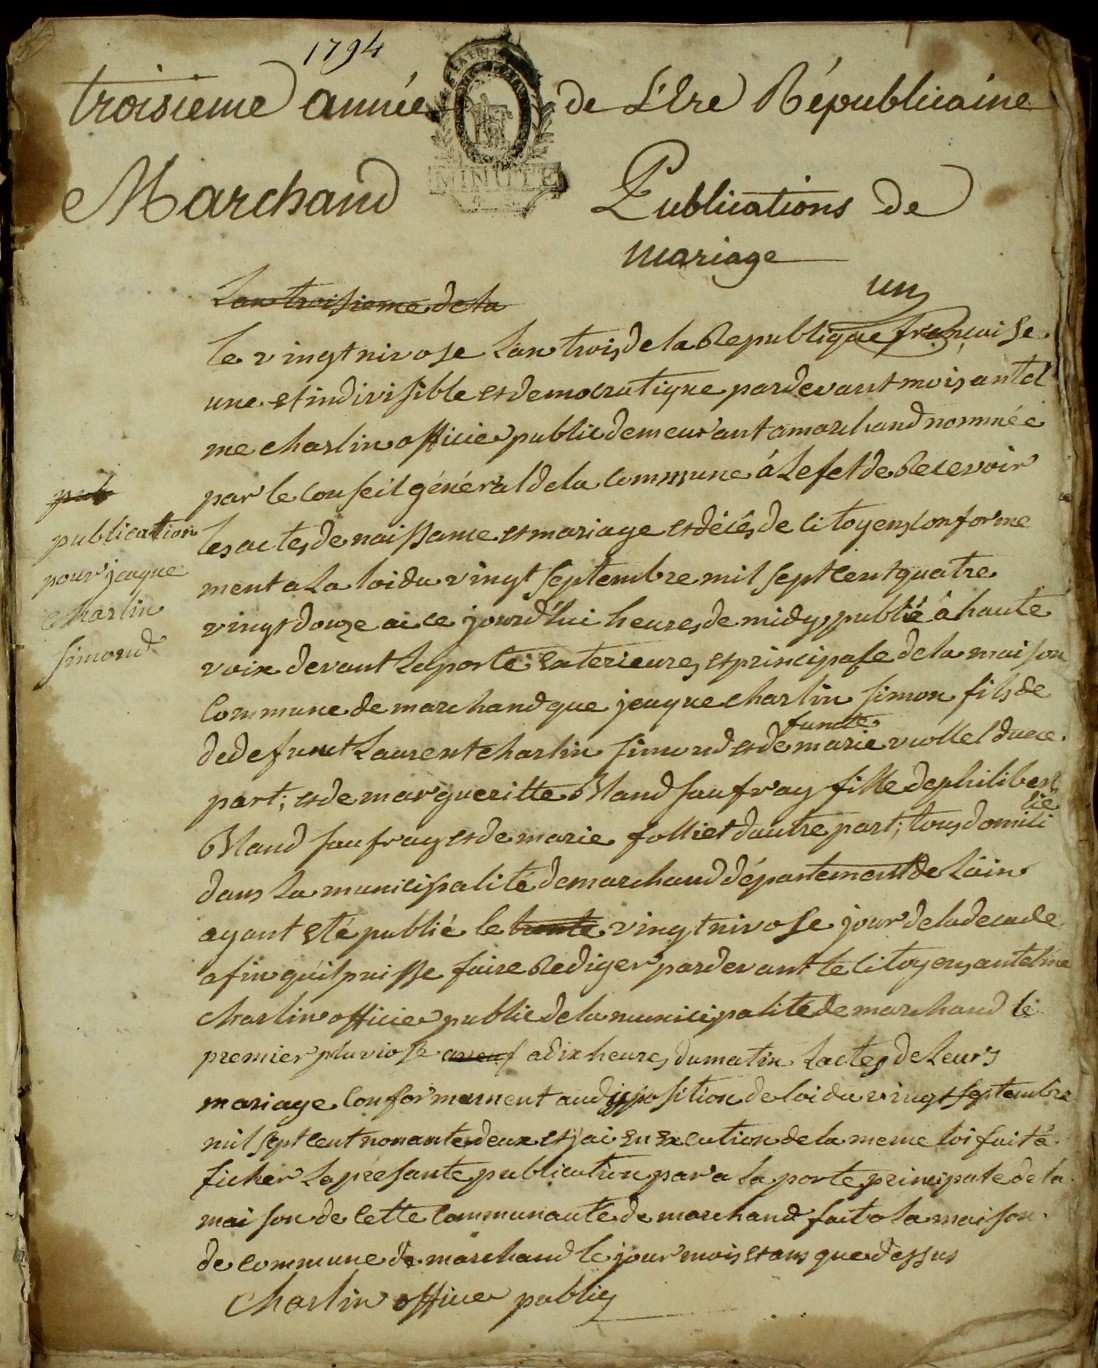 1794
troisieme année de L'Ere Républicaine
MINUTE
Marchand
Publications de
mariage
un
L'an troisieme de la
le vingt nivose L'an trois de la Republique françoise
une et indivisible et democratique pardevant mois antel
me charlin officier public demeurant a marchand nommée
par le Conseil général de la Commune â Lefet de Recevoir
Les actes de naissance et mariage et décês de Citoyens Conforme
ment a La loi du vingt septembre mil sept Cent quatre
vingt douze ai ce jourd'hui heures de midy publié â haute
voix devant La porte exterieures et principale de la maison
Commune de marchand que jeaque charlin simon fils de
de defunct Laurent charlin simond et de functe marie vuollet dune
part; et de margueritte Bland saufray fille de philibert
Bland saufray et de marie folliet dautre part; tous domicilié
dans La municipalité de marchand département de Lain
ayant eté publié le trente vingt nivose jour de la decade
afin quil puisse faire Rediger pardevant le Citoyens antelme
charlin officier public de la municipalité de marchand le
premier pluviose a dix heures du matin Lactes de Leurs
mariage Conformement au disposition de loi du vingt septembre
mil sept Cent nonante deux et jai En Execution de la meme loi fait a
ficher La présante publication par a la porte principale de la
maison de Cette Communauté de marchand fait a La maison
de Commune de marchand le jour mois et ans que dessus
charlin officier public
pub
publication
pour jeaque
charlin
simond